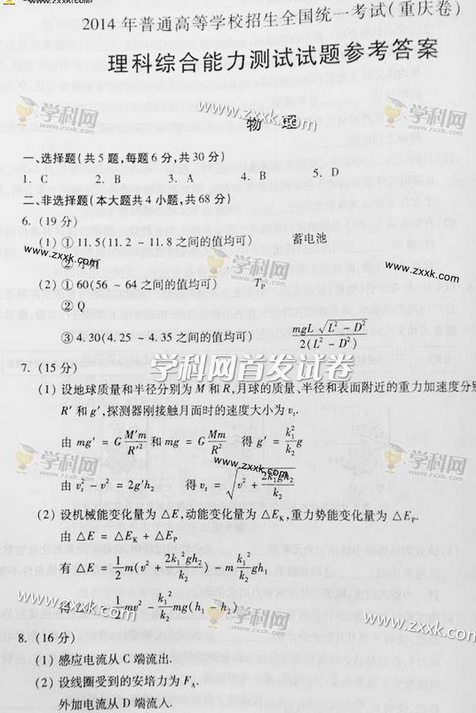 2014年普通高等学校招生全国统一考试(重庆卷)
理科综合能力测试试题参考答案
物 理
一、选择题(共5题,每题6分,共30分)
1. C 2. B 3. A 4. B 5. D
二、非选择题(本大题共4小题,共68分)
6. (19分)
(1) ① 11.5(11.2 ~ 11.8之间的值均可) 蓄电池
② 小灯
(2) ① 60(56 ~ 64之间的值均可) T_P
② Q
③ 4.30(4.25 ~ 4.35之间的值均可) mgL√(L² − D²) / 2(L² − D²)
学科网首发试卷
7. (15分)
(1) 设地球质量和半径分别为M和R,月球的质量、半径和表面附近的重力加速度分别
R′和g′,探测器刚接触月面时的速度大小为v_t.
由 mg′ = G M′m/R′² 和 mg = G Mm/R² 得 g′ = k₁²/k₂ g
由 v_t² − v² = 2g′h₂ 得 v_t = √(v² + 2k₁²gh₂/k₂)
(2) 设机械能变化量为△E,动能变化量为△E_K,重力势能变化量为△E_P.
由 △E = △E_K + △E_P
有 △E = 1/2 m(v² + 2k₁²gh₂/k₂) − m k₁²/k₂ gh₁
得 1/2 mv² − k₁²/k₂ mg(h₁ − h₂)
8. (16分)
(1) 感应电流从C端流出.
(2) 设线圈受到的安培力为F_A.
外加电流从D端流入.
学科网
www.zxxk.com